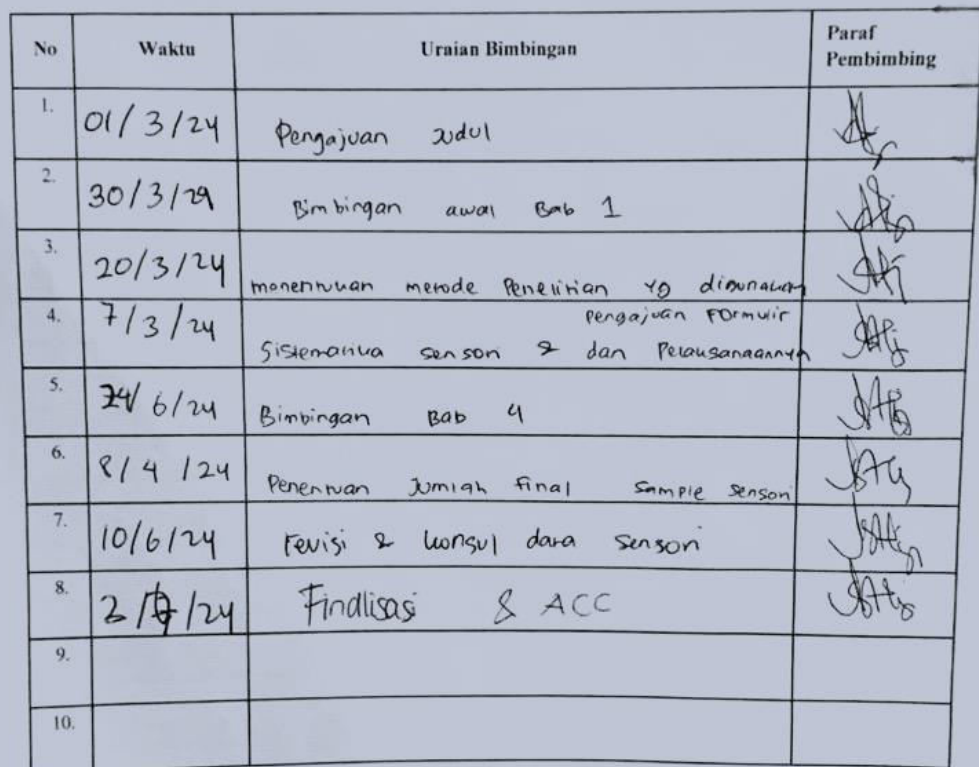 No Waktu Uraian Bimbingan Paraf Pembimbing
1. 01/3/24 Pengajuan Judul
2. 30/3/24 Bimbingan awal Bab 1
3. 20/3/24 menentukan metode Penelitian yg digunakan
4. 7/3/24 pengajuan Formulir
Sistematika sensori & dan Pelaksanaannya
5. 6/24 Bimbingan Bab 4
6. 8/4/24 Penentuan Jumlah final sample sensori
7. 10/6/24 revisi & konsul data sensori
8. /24 Finalisasi & ACC
9.
10.